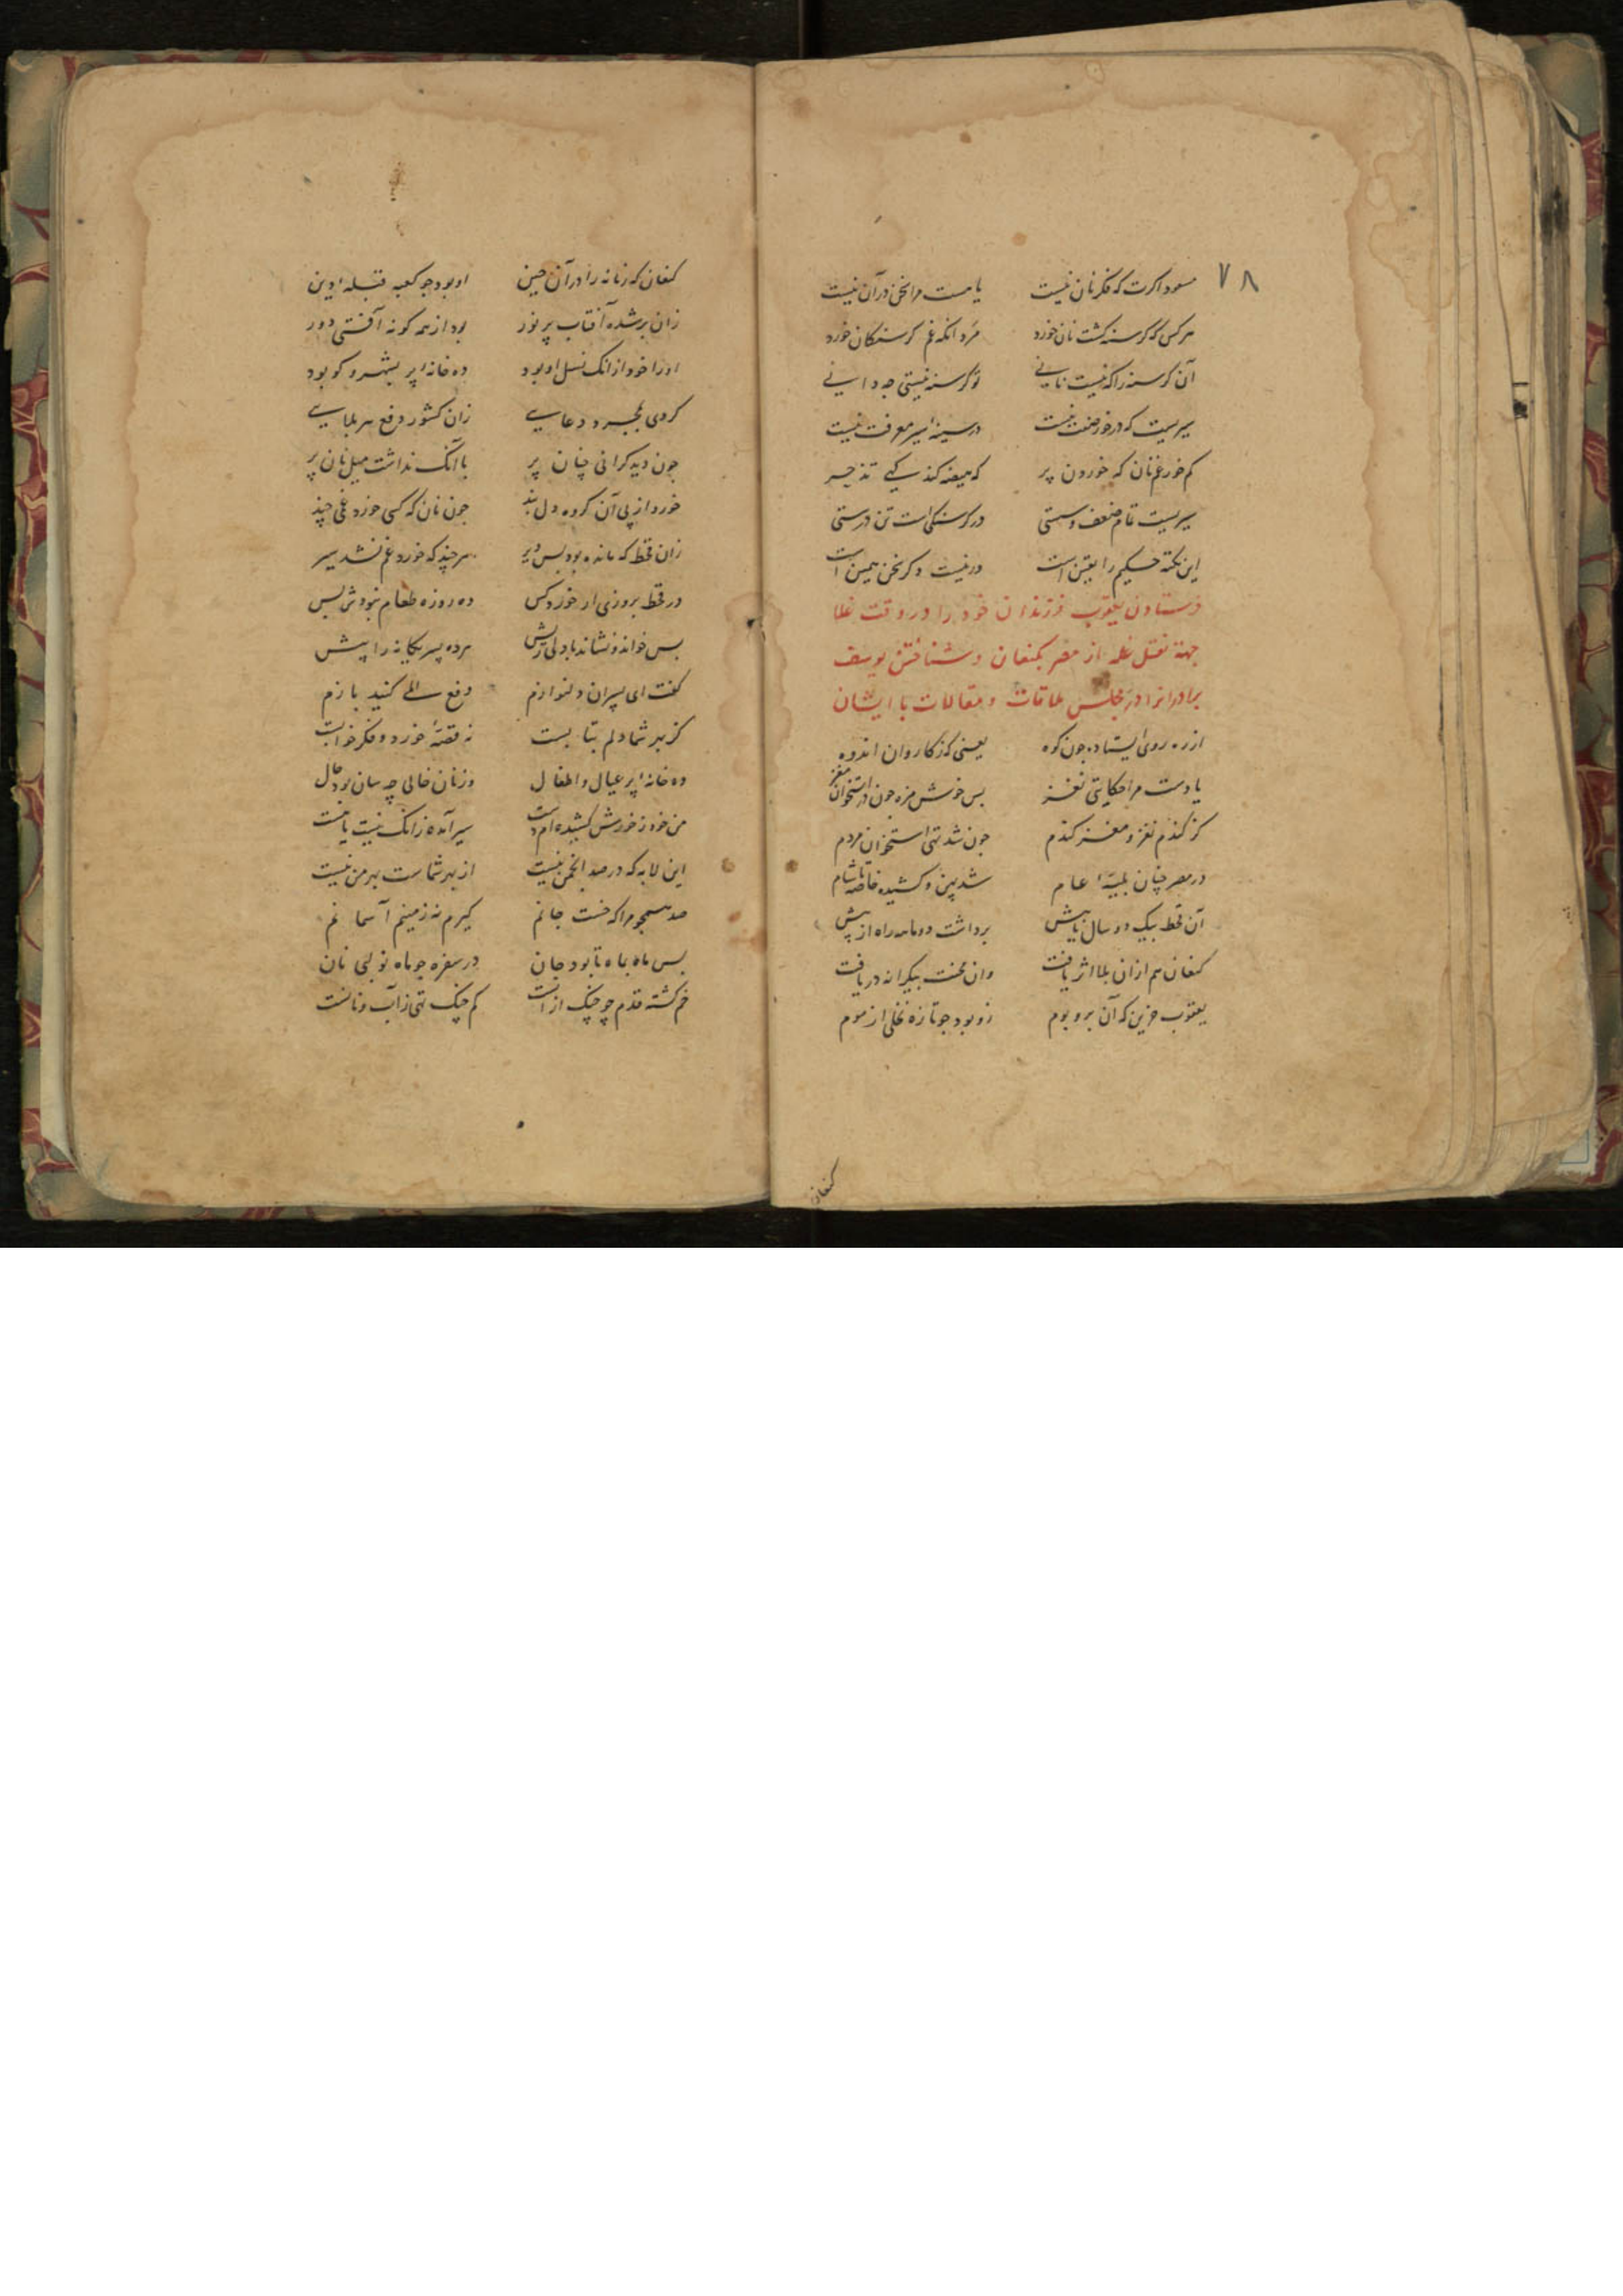 ۷۸
مسعود اکرت که فکر نان نیست یا هست مرا سخن در آن نیست
هر کس که گرسنه گشت نان خورد مرد آنکه غم گرسنگان خورد
آن گرسنه را که نیست نانی تو گرسنه نیستی چه دانی
سیریست که در خور صفت نیست در سینهٔ سیر معرفت نیست
کم خور غم نان که خوردن پر که هیضه کند یکی
سیریست تمام ضعف و سستی در گرسنگی است تن درستی
این نکته حکیم را یقین است ور نیست دگر سخن همین است
فرستادن یعقوب فرزندان خود را در وقت غلا
جهة نقل غله از مصر بکنعان و شناختن یوسف
برادرانرا در مجلس ملاقات و مقالات با ایشان
از ره روی ایستاده چون کوه یعنی که ز کاروان اندوه
یادست مرا حکایتی نغز بس خوش مزه چون در استخوان مغز
کز گندم نغز و مغز گندم چون شد تهی استخوان مردم
در مصر چنان بلیهٔ عام شد پهن و کشیده خاصه تا شام
آن قحط بیک دو سال برداشت دو ماهه راه از پیش
کنعان هم از آن بلا اثر یافت وان محنت بیکرانه دریافت
یعقوب حزین که آن بر و بوم زو بود چو تازه نخلی از موم
کنعان
کنعان که زمانه را در آن حین او بود چو کعبه قبلهٔ دین
زان بر شده آفتاب پر نور بود از همه گونه آفتی دور
او را خود از آنک نسل او بود ده خانه پر بشهر و کو بود
کردی بخیر و دعایی زان کشور دفع هر بلایی
چون دید گرانی چنان پر با آنک نداشت میل نان پر
خورد از پی آن گروه دل بند چون نان که کسی خورد غمی چند
زان قحط که مانده بود بس دیر هر چند که خورد غم نشد سیر
در قحط بروزی ار خورد کس ده روزه طعام نبودش بس
بس خواند و نشاند با دلی ریش هر ده پسر یگانه را پیش
گفت ای پسران دلنوازم دفع کنید بازم
کز بهر شما دلم بتابست نه قصهٔ خورد و فکر خوابست
ده خانه پر عیال و اطفال وز نان خالی چه سان بود حال
من خود ز خورش کشیده‌ام دست سیر آمده زانک نیست یا هست
این لابه که در صد انجمن نیست از بهر شماست بهر من نیست
صد همچو مرا که خست جانم گیرم نه زمینم آسمانم
بس ماه بماه تا بود جان در سفره چو ماه نو لبی نان
خم گشته قدم چو چنگ از آنست کم چنگ تهی ز آب و نانست